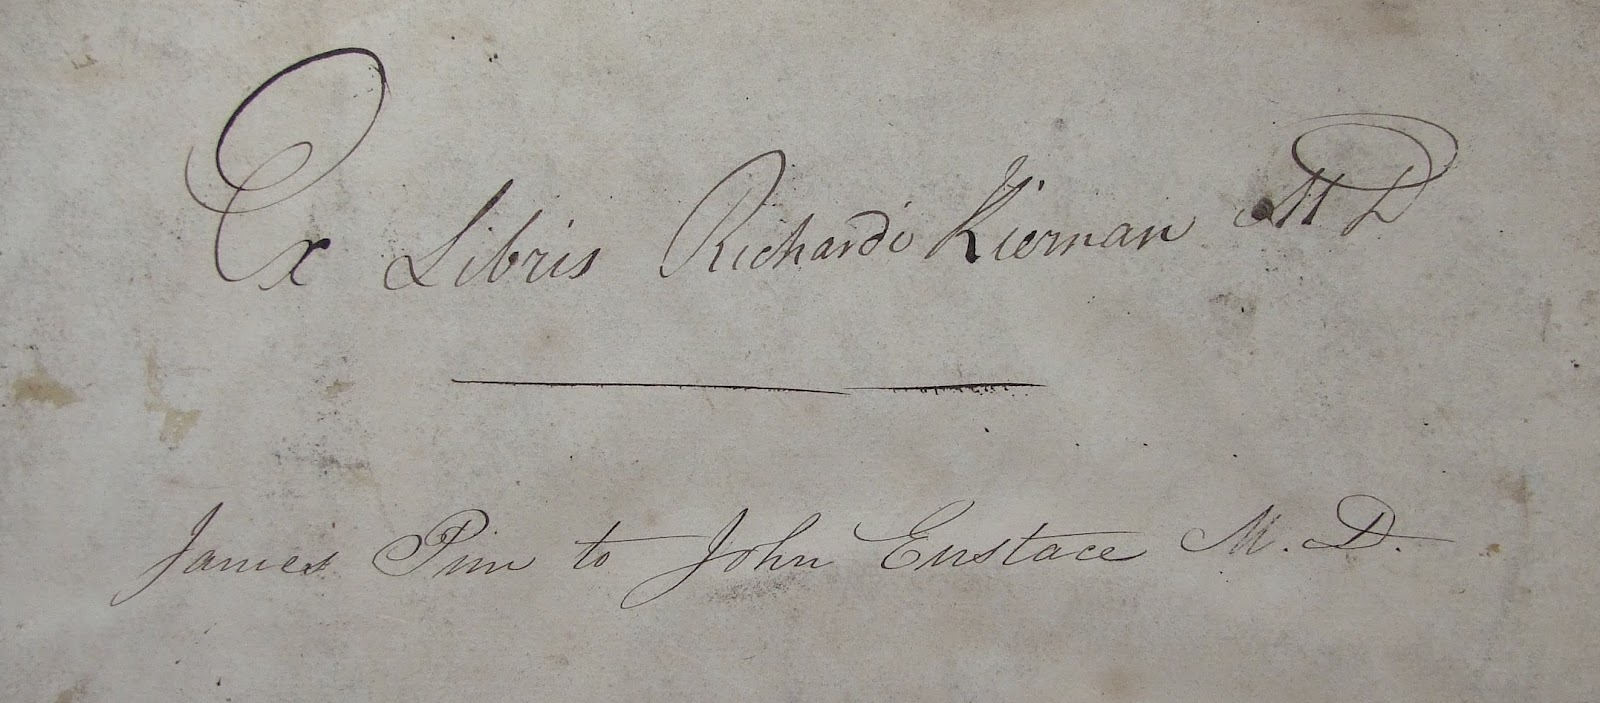 Ex Libris Richardi Kiernan M D
James Pim to John Eustace M. D.